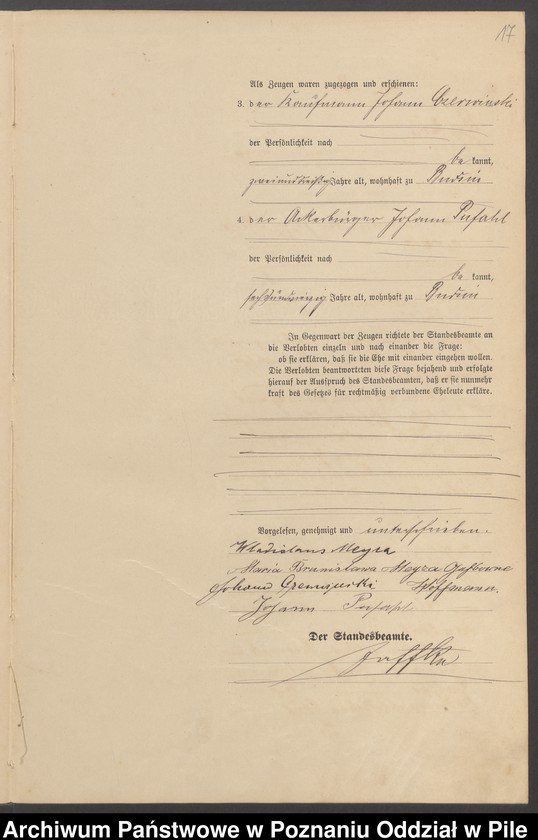 17
Als Zeugen waren zugezogen und erschienen:
3. der Kaufmann Johann Czerwinski
der Persönlichkeit nach
be kannt,
zweiunddreißig Jahre alt, wohnhaft zu Budsin
4. der Ackerbürger Johann Pufahl
der Persönlichkeit nach
be kannt,
Jahre alt, wohnhaft zu Budsin
In Gegenwart der Zeugen richtete der Standesbeamte an
die Verlobten einzeln und nach einander die Frage:
ob sie erklären, daß sie die Ehe mit einander eingehen wollen.
Die Verlobten beantworteten diese Frage bejahend und erfolgte
hierauf der Ausspruch des Standesbeamten, daß er sie nunmehr
kraft des Gesetzes für rechtmäßig verbundene Eheleute erkläre.
Vorgelesen, genehmigt und unterschrieben.
Wladislaus Meyza
Maria Bronislawa Meyza Geborne
Johann Czerwinski Hoffmann.
Johann Pufahl
Der Standesbeamte.
Jaffke
Archiwum Państwowe w Poznaniu Oddział w Pile